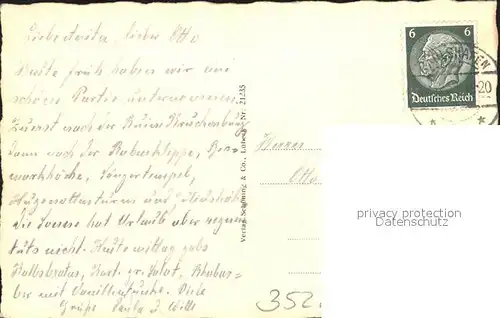 Liebe Anita, lieber Otto
Heute früh haben wir eine
schöne Partie unternommen.
Zuerst nach der Ruine Krukenburg
dann nach der Rabenklippe, Bis-
markhöhe, Sängertempel,
Hugenottenturm und
die Sonne hat Urlaub aber regnen
tuts nicht. Heute mittag gabs
Kalbsbraten, Kart. gr. Salat, Rhabar-
ber mit Vanillentunke. Viele
Grüße Paula & Willi
Verlag Schöning & Co., Lübeck Nr. 21235
6 6
Deutsches Reich
HAFEN
-20
* *
Otto
privacy protection
Datenschutz
352.